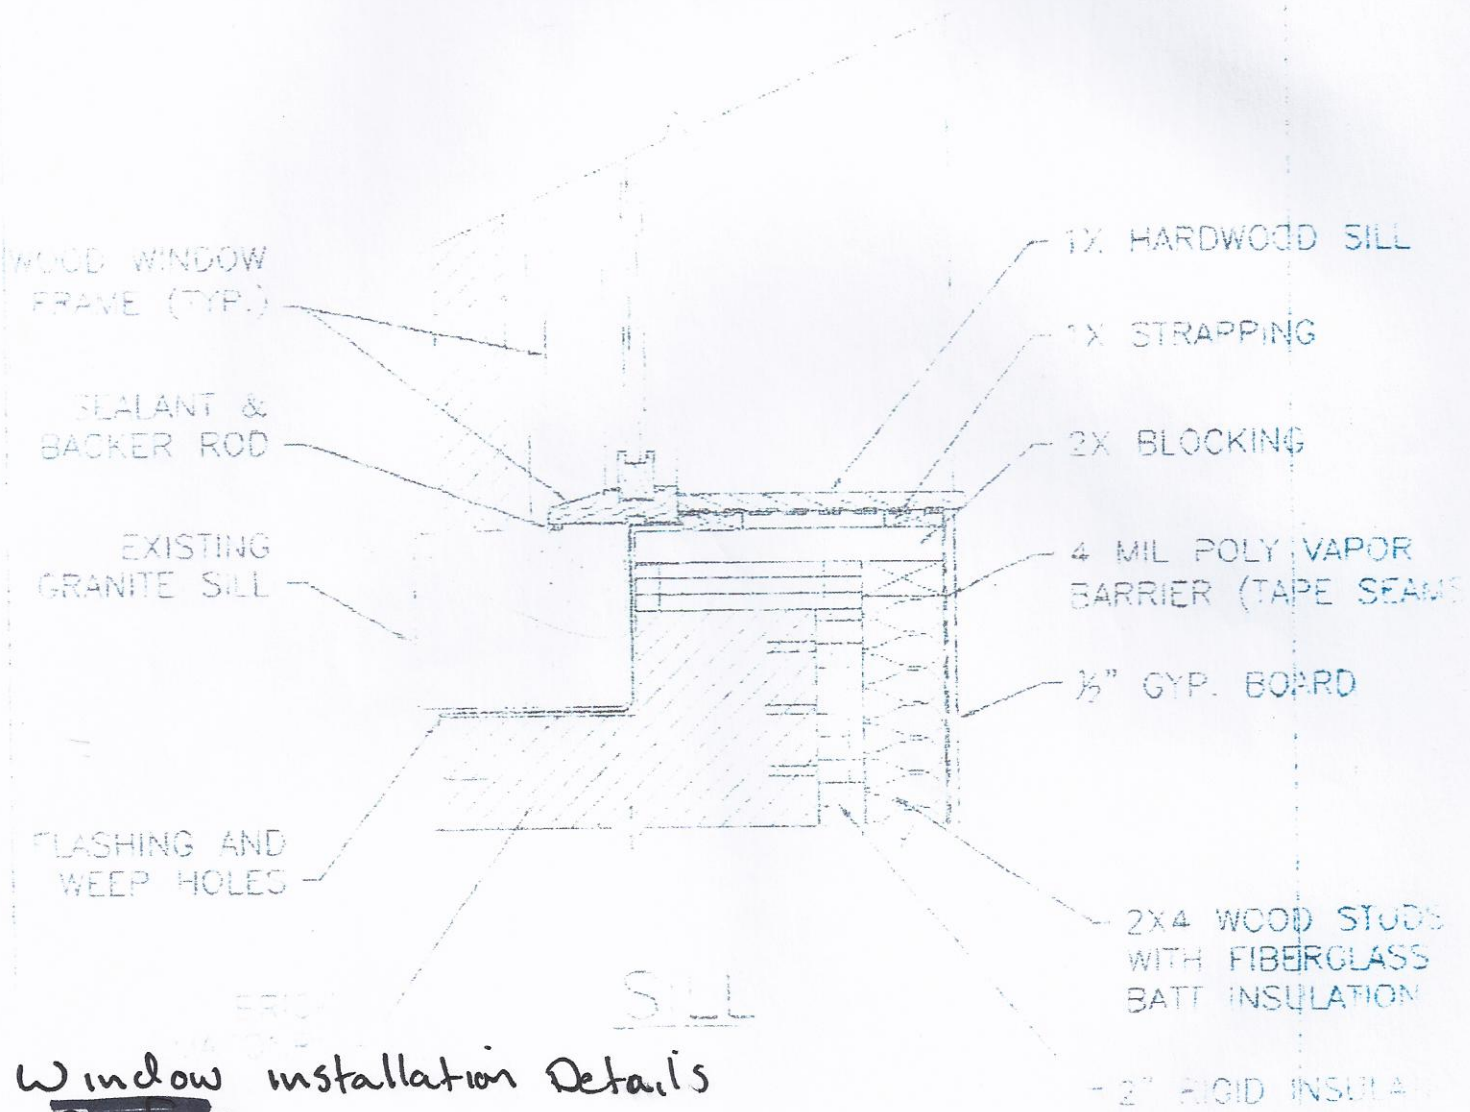 WOOD WINDOW
FRAME (TYP.)
SEALANT &
BACKER ROD
EXISTING
GRANITE SILL
FLASHING AND
WEEP HOLES
1X HARDWOOD SILL
1X STRAPPING
2X BLOCKING
4 MIL POLY VAPOR
BARRIER (TAPE SEAMS
½" GYP. BOARD
2X4 WOOD STUDS
WITH FIBERGLASS
BATT INSULATION
2" RIGID INSULA
SILL
Window installation Details